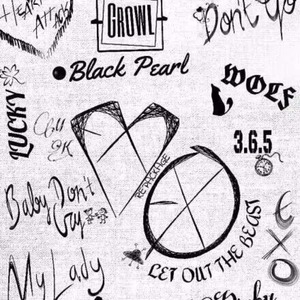 HEART
ATTACK
GROWL
Don't Go
Black Pearl
WOLF
LUCKY
3.6.5
REPACKAGE
Baby Don't
Cry
LET OUT THE BEAST
EXO
My Lady